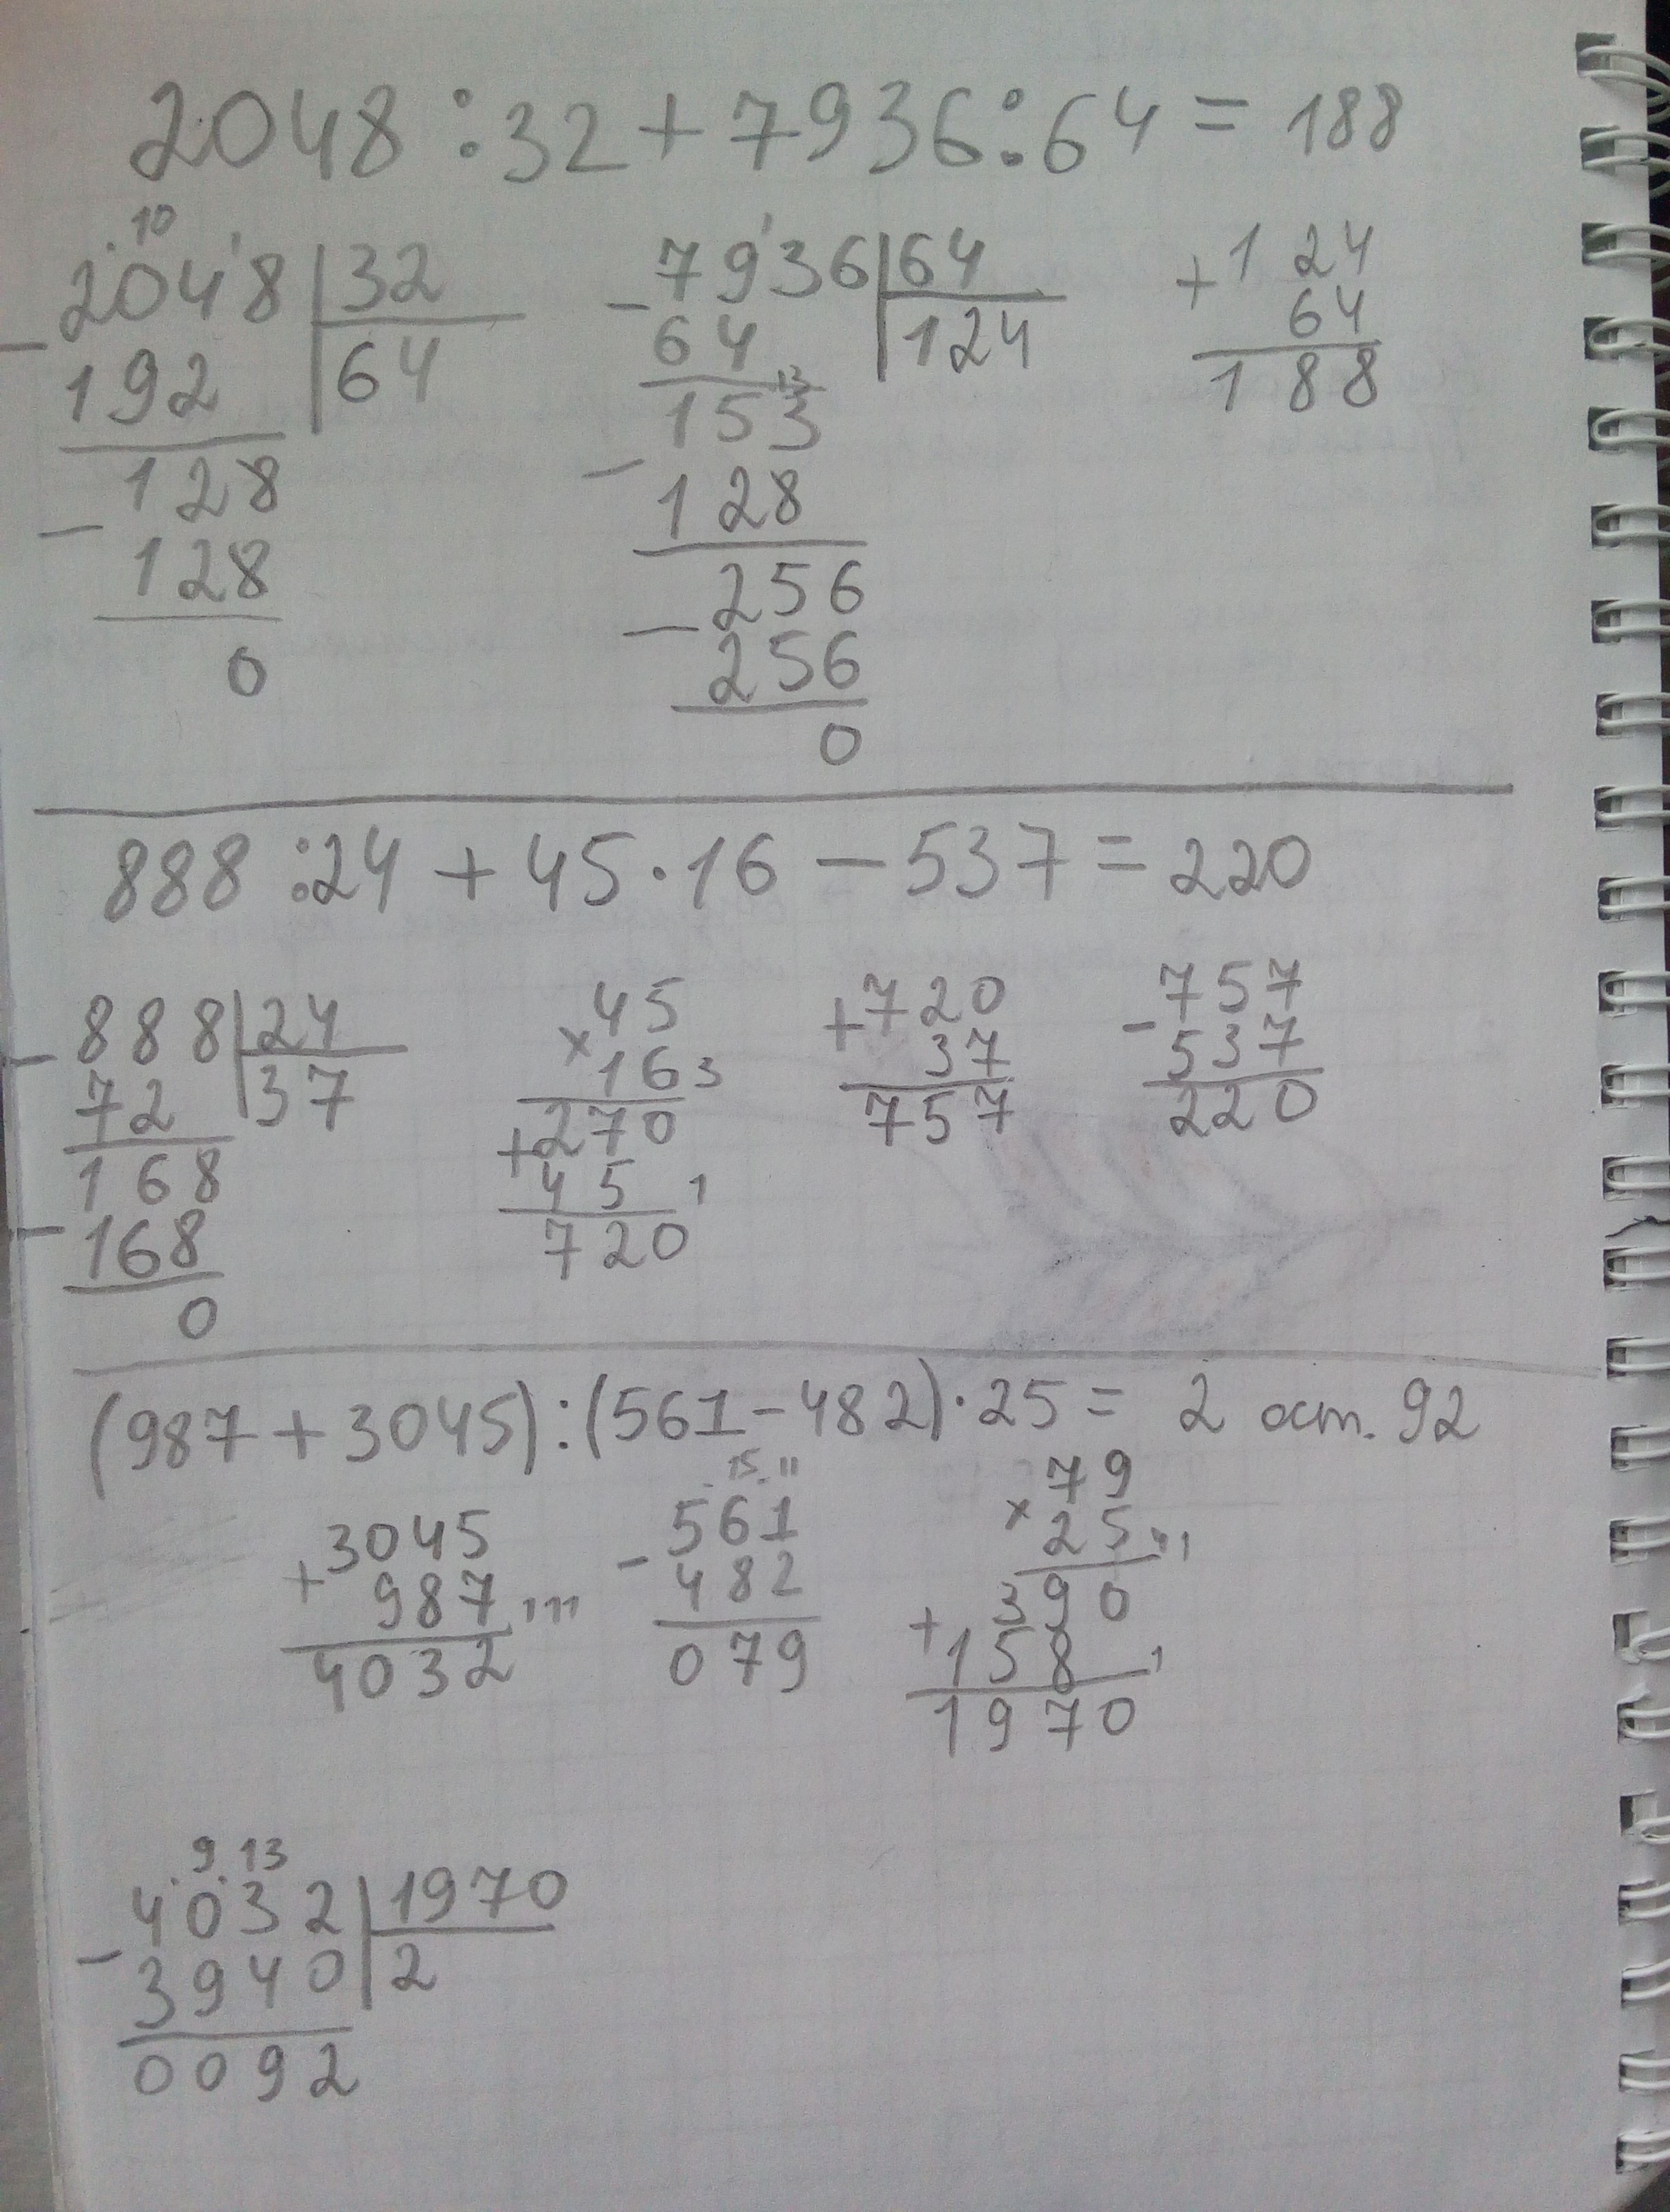 2048 : 32 + 7936 : 64 = 188
10
2048 | 32
- 192 | 64
128
- 128
0
1
- 7936 | 64
64 | 124
13
153
- 128
256
- 256
0
+ 124
64
188
888 : 24 + 45 · 16 - 537 = 220
- 888 | 24
72 | 37
168
- 168
0
× 45
16 3
+ 270
45 1
720
+ 720
37
757
- 757
537
220
(987 + 3045) : (561 - 482) · 25 = 2 ост. 92
+ 3045
987 111
4032
15 11
- 561
482
079
× 79
25
390
+ 158 1
1970
9 13
- 4032 | 1970
3940 | 2
0092